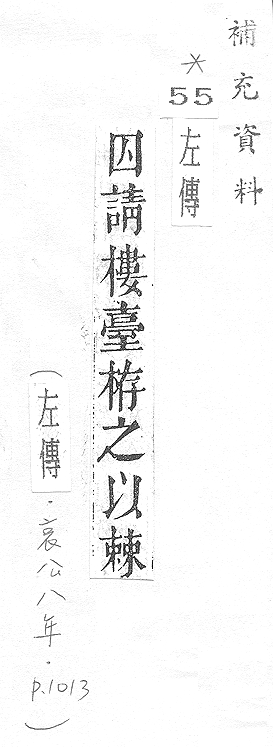 補充資料
*
55
左傳
囚諸樓臺栫之以棘
(左傳·哀公八年·p.1013)